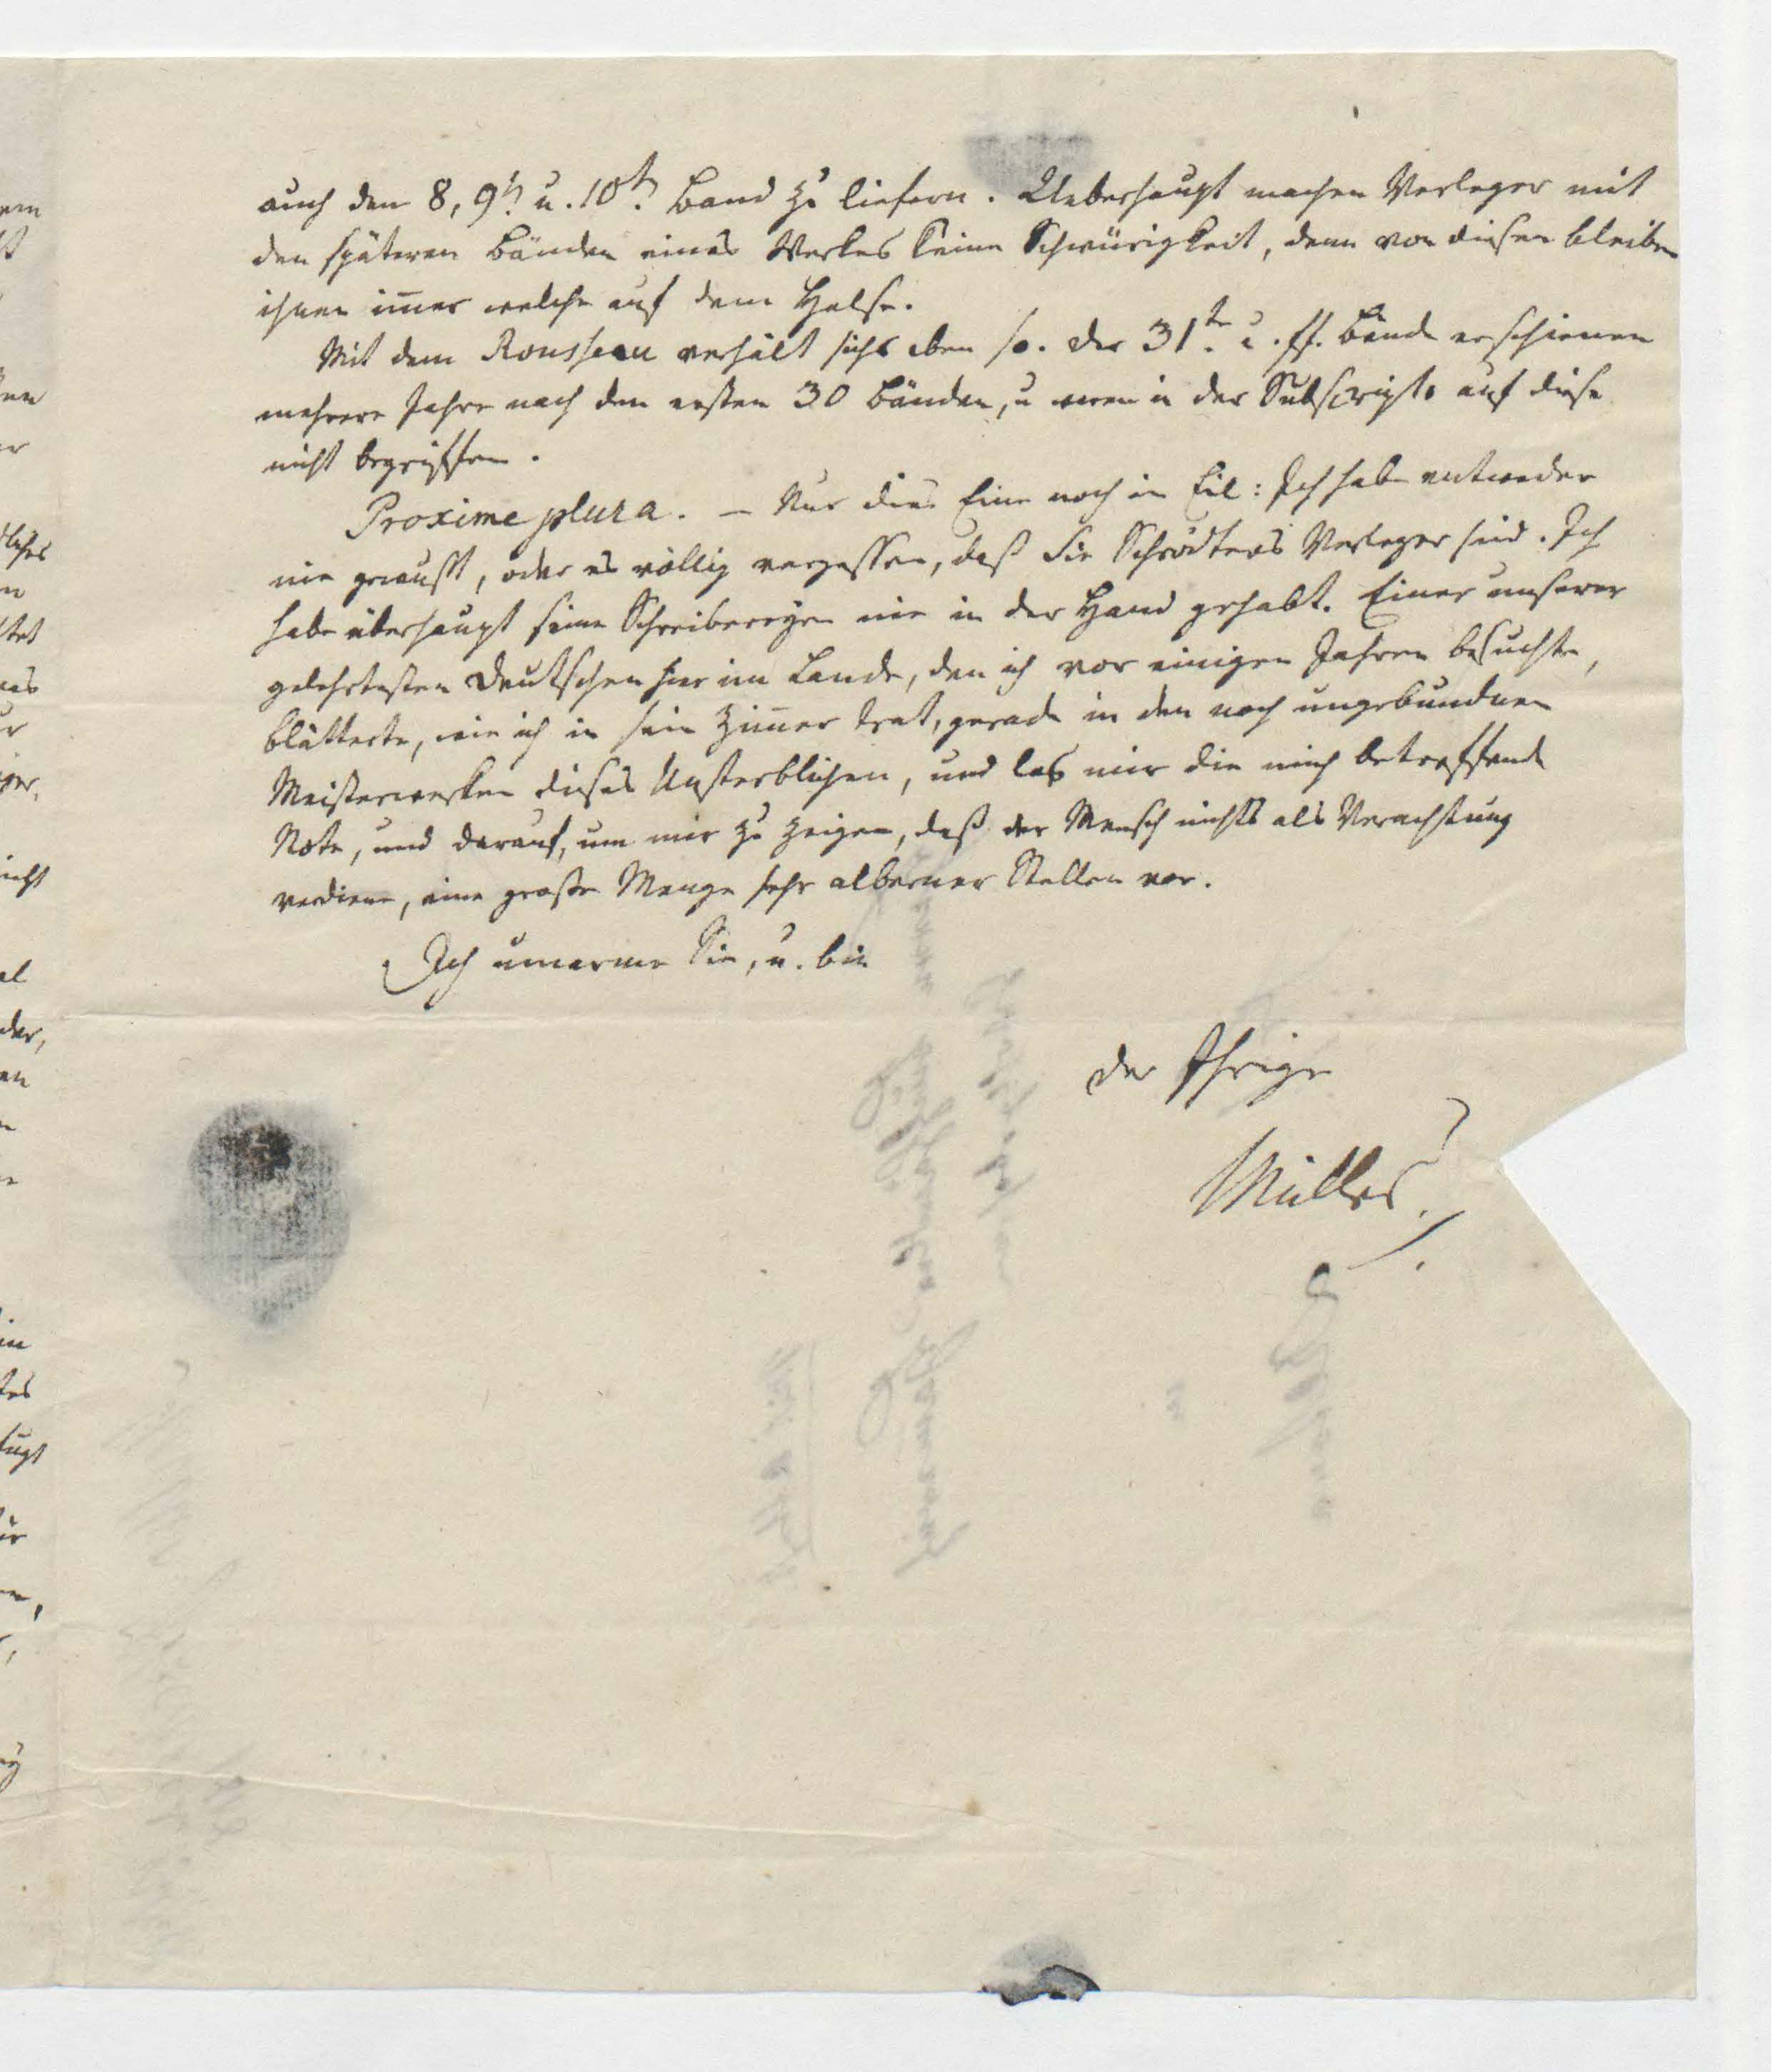 auch den 8, 9t. u. 10t. Band zu liefern. Ueberhaupt machen Verleger mit
den späteren Bänden eines Werkes keine Schwürigkeit, denn von diesen bleiben
ihnen im̅er welche auf dem Halse.
Mit dem Rousseau verhält sichs eben so. Der 31te. u. ff. Bände erschienen
mehrere Jahre nach den ersten 30 Bänden, u waren in der Subscript. auf diese
nicht begriffen.
Proxime plura. – Nur dies Eine noch in Eil: Ich habe entweder
nie gewußt, oder es völlig vergessen, daß Sie Schrödters Verleger sind. Ich
habe überhaupt seine Schreibereyen nie in der Hand gehabt. Einer unserer
gelehrtesten Deutschen hier im Lande, den ich vor einigen Jahren besuchte,
blätterte, wie ich in sein Zim̅er trat, gerade in den noch ungebundnen
Meisterwerken dieses Unsterblichen, und las mir die mich betreffende
Note, und darauf, um mir zu zeigen, daß der Mensch nichts als Verachtung
verdiene, eine große Menge sehr alberner Stellen vor.
Ich umarme Sie, u. bin
der Ihrige
Müller.